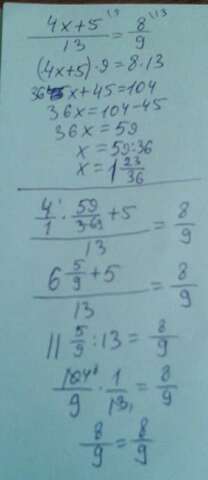 (4x+5)/13 = 8/9
(4x+5)·9=8·13
36x+45=104
36x=104-45
36x=59
x=59:36
x=1 23/36
(4/1 · 59/369 +5)/13 = 8/9
(6 5/9 +5)/13 = 8/9
11 5/9 :13= 8/9
104/9 · 1/13 = 8/9
8/9 = 8/9